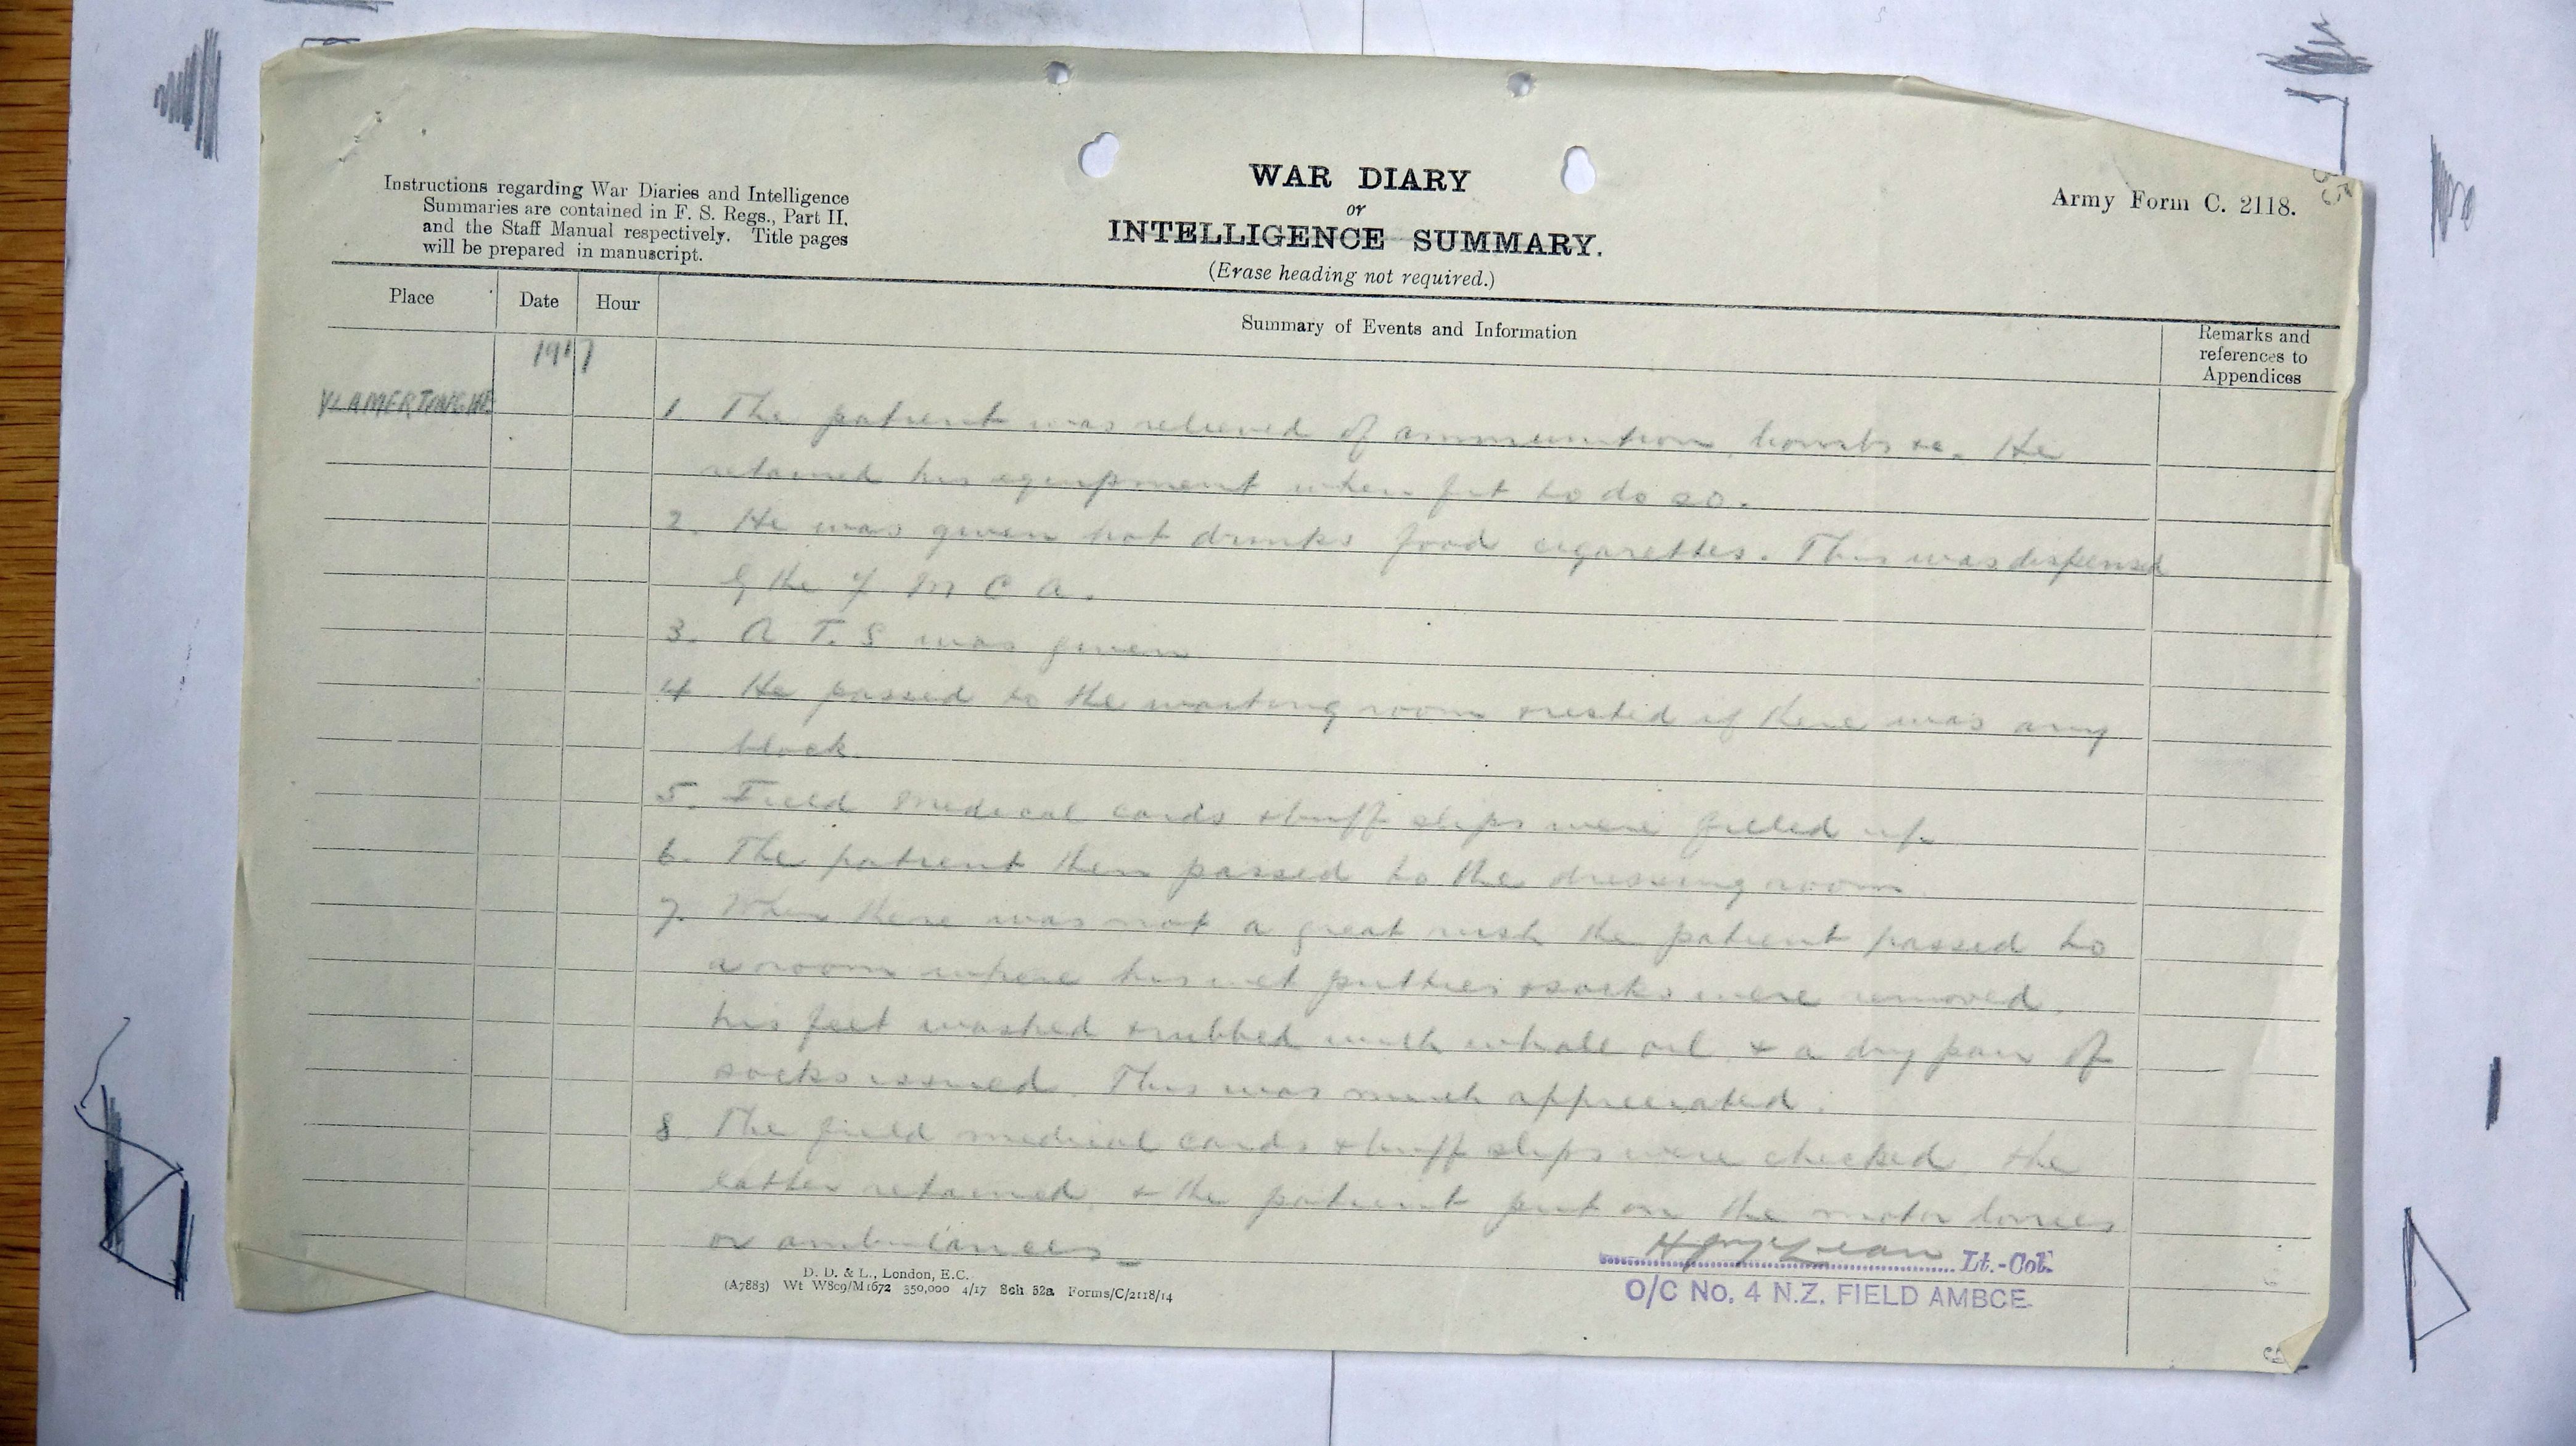 Instructions regarding War Diaries and Intelligence
Summaries are contained in F. S. Regs., Part II.
and the Staff Manual respectively. Title pages
will be prepared in manuscript.
WAR DIARY
or
INTELLIGENCE SUMMARY.
(Erase heading not required.)
Army Form C. 2118.
Place
Date
Hour
Summary of Events and Information
Remarks and
references to
Appendices
1917
VLAMERTINGHE
1. The patient was relieved of ammunition, bombs &c. He
retained his equipment when fit to do so.
2. He was given hot drinks food cigarettes. This was dispensed
by the Y M C A.
3. A T. S was given
4 He passed to the waiting room & rested if there was any
block.
5. Field Medical cards & buff slips were filled up.
6. The patient then passed to the dressing room.
7. When there was not a great rush the patient passed to
a room where his wet putties & socks were removed,
his feet washed & rubbed with whale oil, & a dry pair of
socks issued. This was much appreciated.
8. The field medical cards & buff slips were checked, the
latter retained, & the patient put on the motor lorries
or ambulances
Lt.-Col.
O/C No. 4 N.Z. FIELD AMBCE.
D. D. & L., London, E.C.
(A7883) Wt W809/M1672 350,000 4/17 Sch 52a Forms/C/2118/14